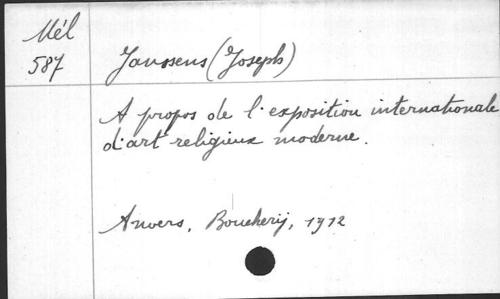 Mél
587
Janssens (Joseph)
A propos de l'exposition internationale
d'art religieux moderne.
Anvers, Boucherij, 1912